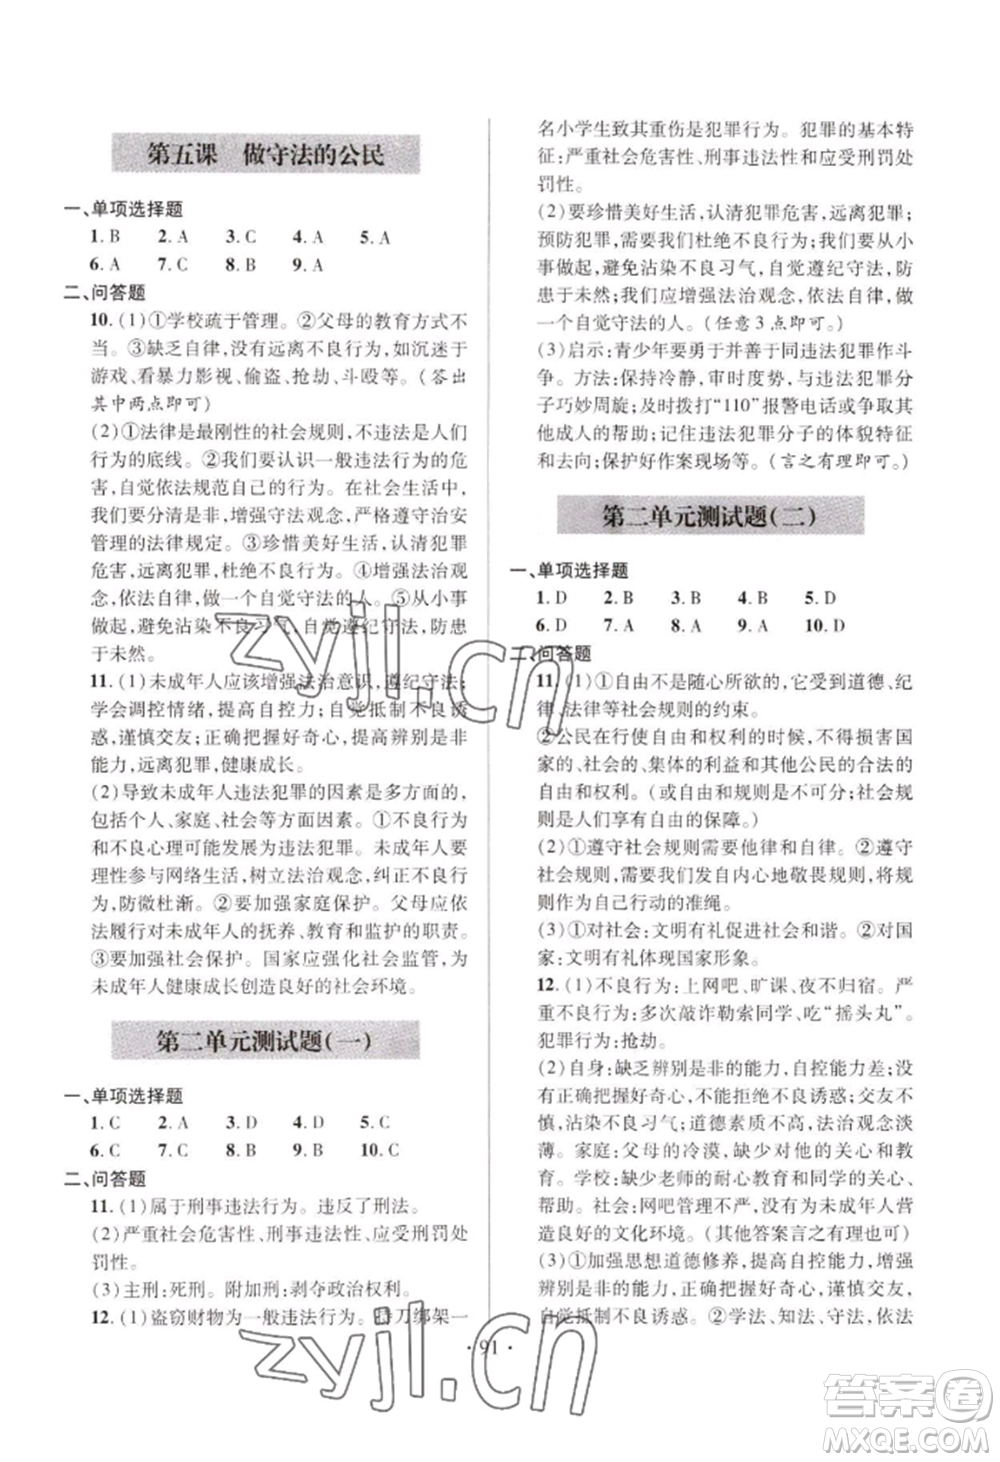 第五课　做守法的公民
一、单项选择题
1. B　2. A　3. C　4. A　5. A
6. A　7. C　8. B　9. A
二、问答题
10. (1)①学校疏于管理。②父母的教育方式不
当。③缺乏自律,没有远离不良行为,如沉迷于
游戏、看暴力影视、偷盗、抢劫、斗殴等。(答出
其中两点即可)
(2)①法律是最刚性的社会规则,不违法是人们
行为的底线。②我们要认识一般违法行为的危
害,自觉依法规范自己的行为。在社会生活中,
我们要分清是非,增强守法观念,严格遵守治安
管理的法律规定。③珍惜美好生活,认清犯罪
危害,远离犯罪,杜绝不良行为。④增强法治观
念,依法自律,做一个自觉守法的人。⑤从小事
做起,避免沾染不良习气,自觉遵纪守法,防患
于未然。
11. (1)未成年人应该增强法治意识,遵纪守法;
学会调控情绪,提高自控力;自觉抵制不良诱
惑,谨慎交友;正确把握好奇心,提高辨别是非
能力,远离犯罪,健康成长。
(2)导致未成年人违法犯罪的因素是多方面的,
包括个人、家庭、社会等方面因素。①不良行为
和不良心理可能发展为违法犯罪。未成年人要
理性参与网络生活,树立法治观念,杜绝不良行
为,防微杜渐。②要加强家庭保护。父母应依
法履行对未成年人的抚养、教育和监护的职责。
③要加强社会保护。国家应强化社会监管,为
未成年人健康成长创造良好的社会环境。
第二单元测试题(一)
一、单项选择题
1. C　2. A　3. D　4. D　5. C
6. C　7. C　8. B　9. B　10. C
二、问答题
11. (1)属于刑事违法行为。违反了刑法。
(2)严重社会危害性、刑事违法性、应受刑罚处
罚性。
(3)主刑:死刑。附加刑:剥夺政治权利。
12. (1)盗窃财物为一般违法行为。持刀绑架一
名小学生致其重伤是犯罪行为。犯罪的基本特
征:严重社会危害性、刑事违法性和应受刑罚处
罚性。
(2)要珍惜美好生活,认清犯罪危害,远离犯罪;
预防犯罪,需要我们杜绝不良行为;我们要从小
事做起,避免沾染不良习气,自觉遵纪守法,防
患于未然;我们应增强法治观念,依法自律,做
一个自觉守法的人。(任意3点即可。)
(3)启示:青少年要勇于并善于同违法犯罪作斗
争。方法:保持冷静,审时度势,与违法犯罪分
子巧妙周旋;及时拨打“110”报警电话或争取其
他成人的帮助;记住违法犯罪分子的体貌特征
和去向;保护好作案现场等。(言之有理即可。)
第二单元测试题(二)
一、单项选择题
1. D　2. B　3. B　4. B　5. D
6. D　7. A　8. A　9. A　10. D
二、问答题
11. (1)①自由不是随心所欲的,它受到道德、纪
律、法律等社会规则的约束。
②公民在行使自由和权利的时候,不得损害国
家的、社会的、集体的利益和其他公民的合法的
自由和权利。(或自由和规则是不可分;社会规
则是人们享有自由的保障。)
(2)①遵守社会规则需要他律和自律。②遵守
社会规则,需要我们发自内心地敬畏规则,将规则
作为自己行动的准绳。
(3)①对社会:文明有礼促进社会和谐。②对国
家:文明有礼体现国家形象。
12. (1)不良行为:上网吧、旷课、夜不归宿。严
重不良行为:多次敲诈勒索同学、吃“摇头丸”。
犯罪行为:抢劫。
(2)自身:缺乏辨别是非的能力,自控能力差,没
有正确把握好奇心,不能拒绝不良诱惑;交友不
慎,沾染不良习气;道德素质不高,法治观念淡
薄。家庭:父母的冷漠,缺少对子女的关心和教
育。学校:缺少老师的耐心教育和同学的关爱、
帮助。社会:网吧管理不严,没有为未成年人营
造良好的文化环境。(其他答案言之有理也可)
(3)①加强思想道德修养,提高自控能力,增强
辨别是非能力,正确把握好奇心,谨慎交友,
自觉抵制不良诱惑。②学法、知法、守法、依法
· 91 ·
zyjl.cn
zyjl.cn
答案圈
MXQE.COM